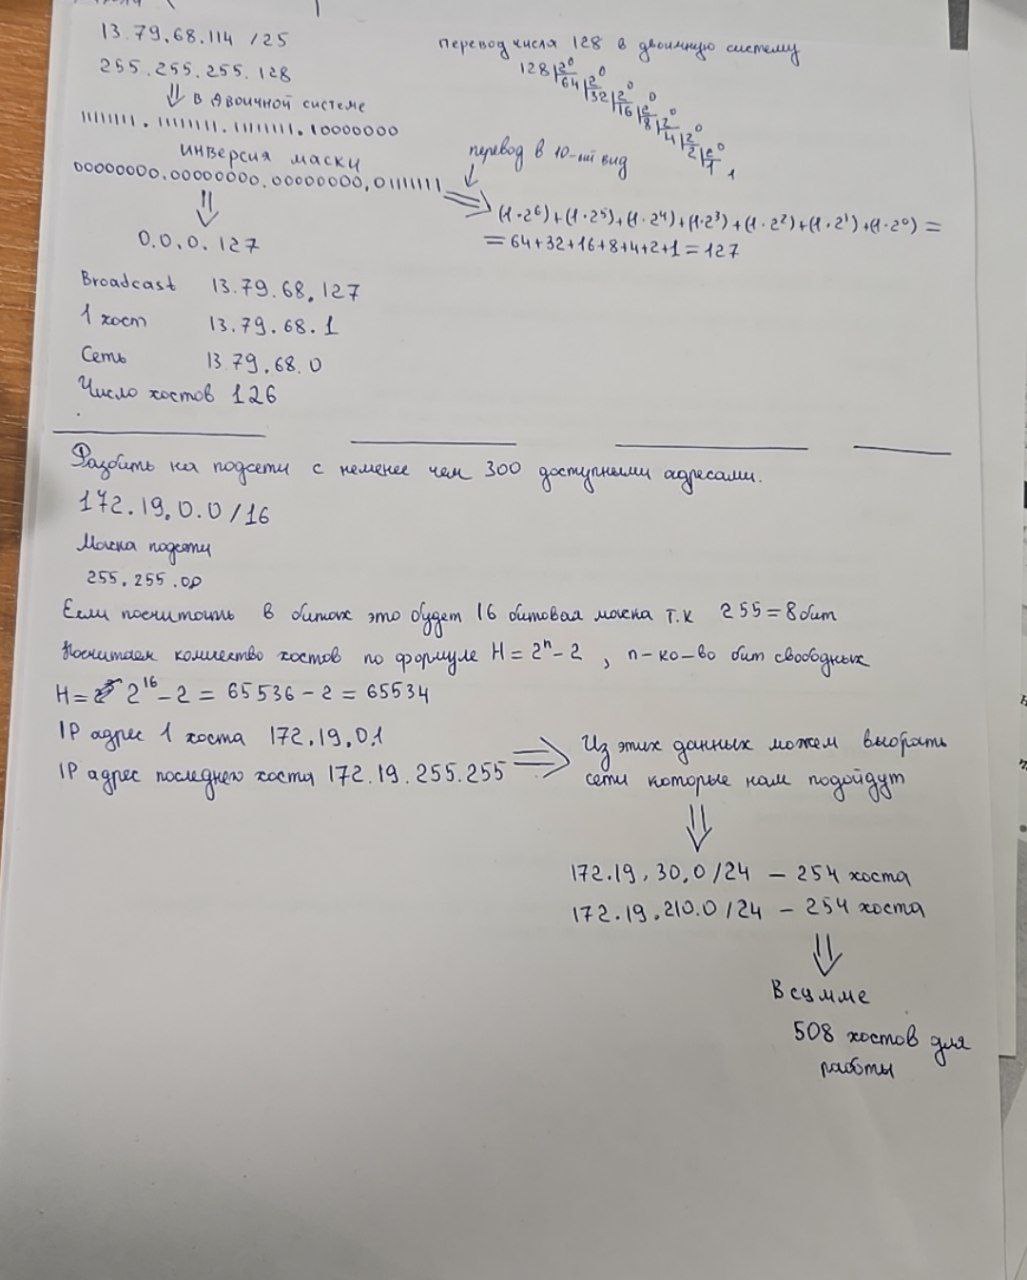 13.79.68.114 /25
255.255.255.128
⇓ в двоичной системе
11111111.11111111.11111111.10000000
инверсия маски
00000000.00000000.00000000,01111111
0.0.0.127
перевод числа 128 в двоичную систему
128 2 0
64 2 0
32 2 0
16 2 0
8 2 0
4 2 0
2 2 0
1 1
перевод в 10-ый вид
(1·2⁶)+(1·2⁵)+(1·2⁴)+(1·2³)+(1·2²)+(1·2¹)+(1·2⁰) =
= 64+32+16+8+4+2+1 = 127
Broadcast 13.79.68.127
1 хост 13.79.68.1
Сеть 13.79.68.0
Число хостов 126
Разбить на подсети с неменее чем 300 доступными адресами.
172.19.0.0/16
Маска подсети
255.255.00
Если посчитать в битах это будет 16 битовая маска т.к 255=8бит
Посчитаем количество хостов по формуле H=2ⁿ-2, n-ко-во бит свободных
H= 2¹⁶-2 = 65536-2 = 65534
IP адрес 1 хоста 172.19.0.1
IP адрес последнего хоста 172.19.255.255
⇒ Из этих данных можем выбрать
сети которые нам подойдут
172.19.30.0/24 – 254 хоста
172.19.210.0/24 – 254 хоста
В сумме
508 хостов для
работы